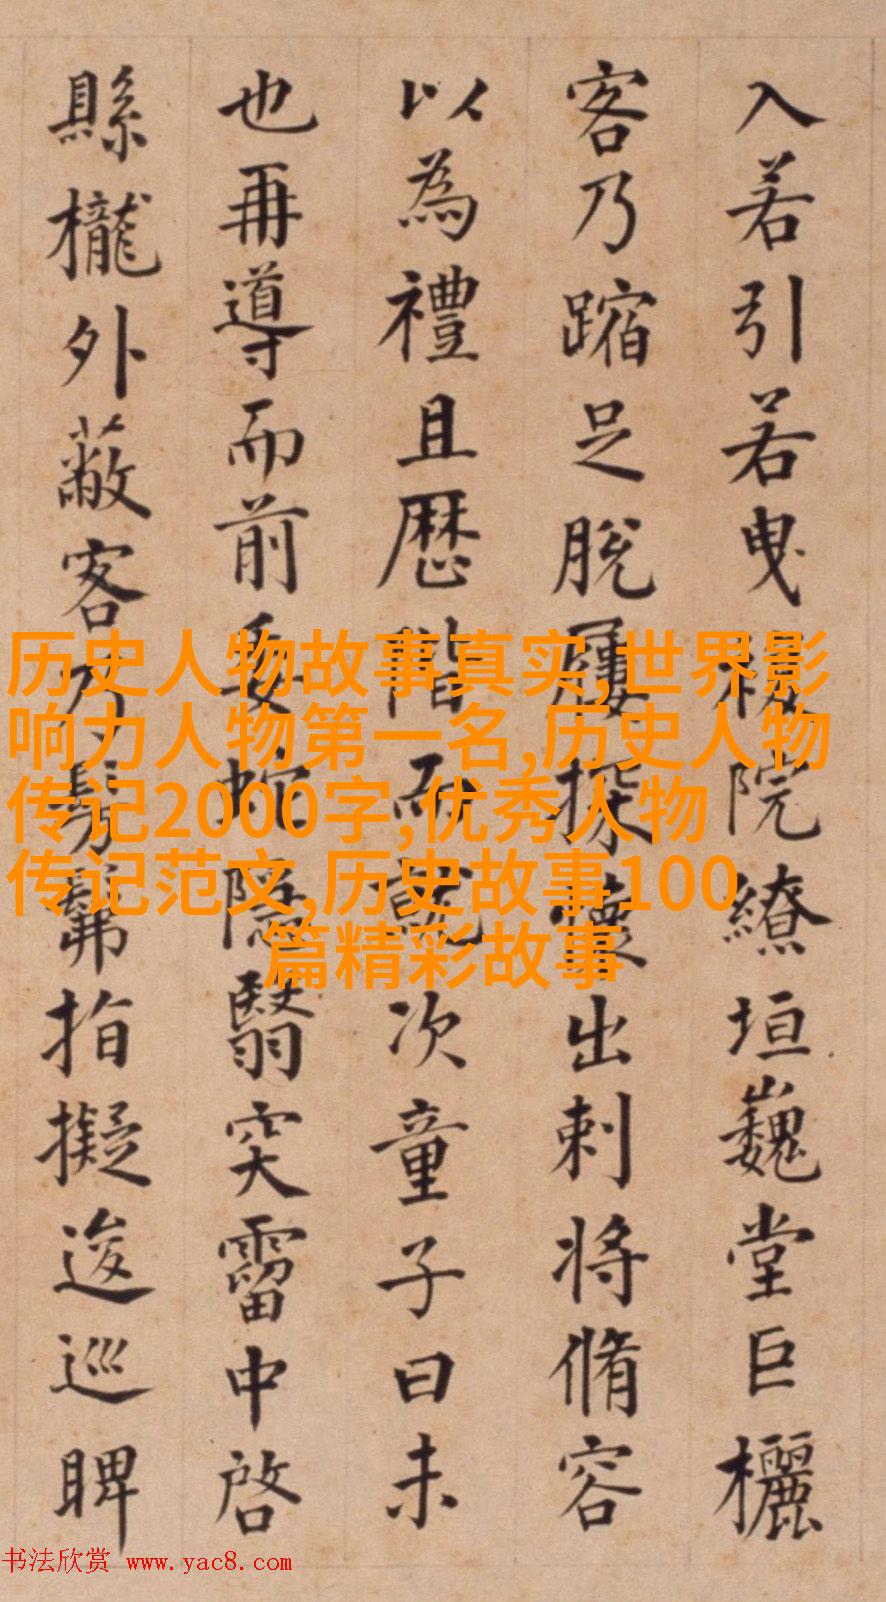 入若引若曳複院繚垣巍堂巨欐
客乃蹜足脫屨探懷出刺將脩容
以為禮且歷階而就次童子曰未
也再導而前委蛇隱翳突霤中啓
縣櫳外蔽客乃髣髴指擬逡巡睥
历史人物故事真实,世界影
响力人物第一名,历史人物
传记2000字,优秀人物
传记范文,历史故事100
篇精彩故事
书法欣赏 www.yac8.com